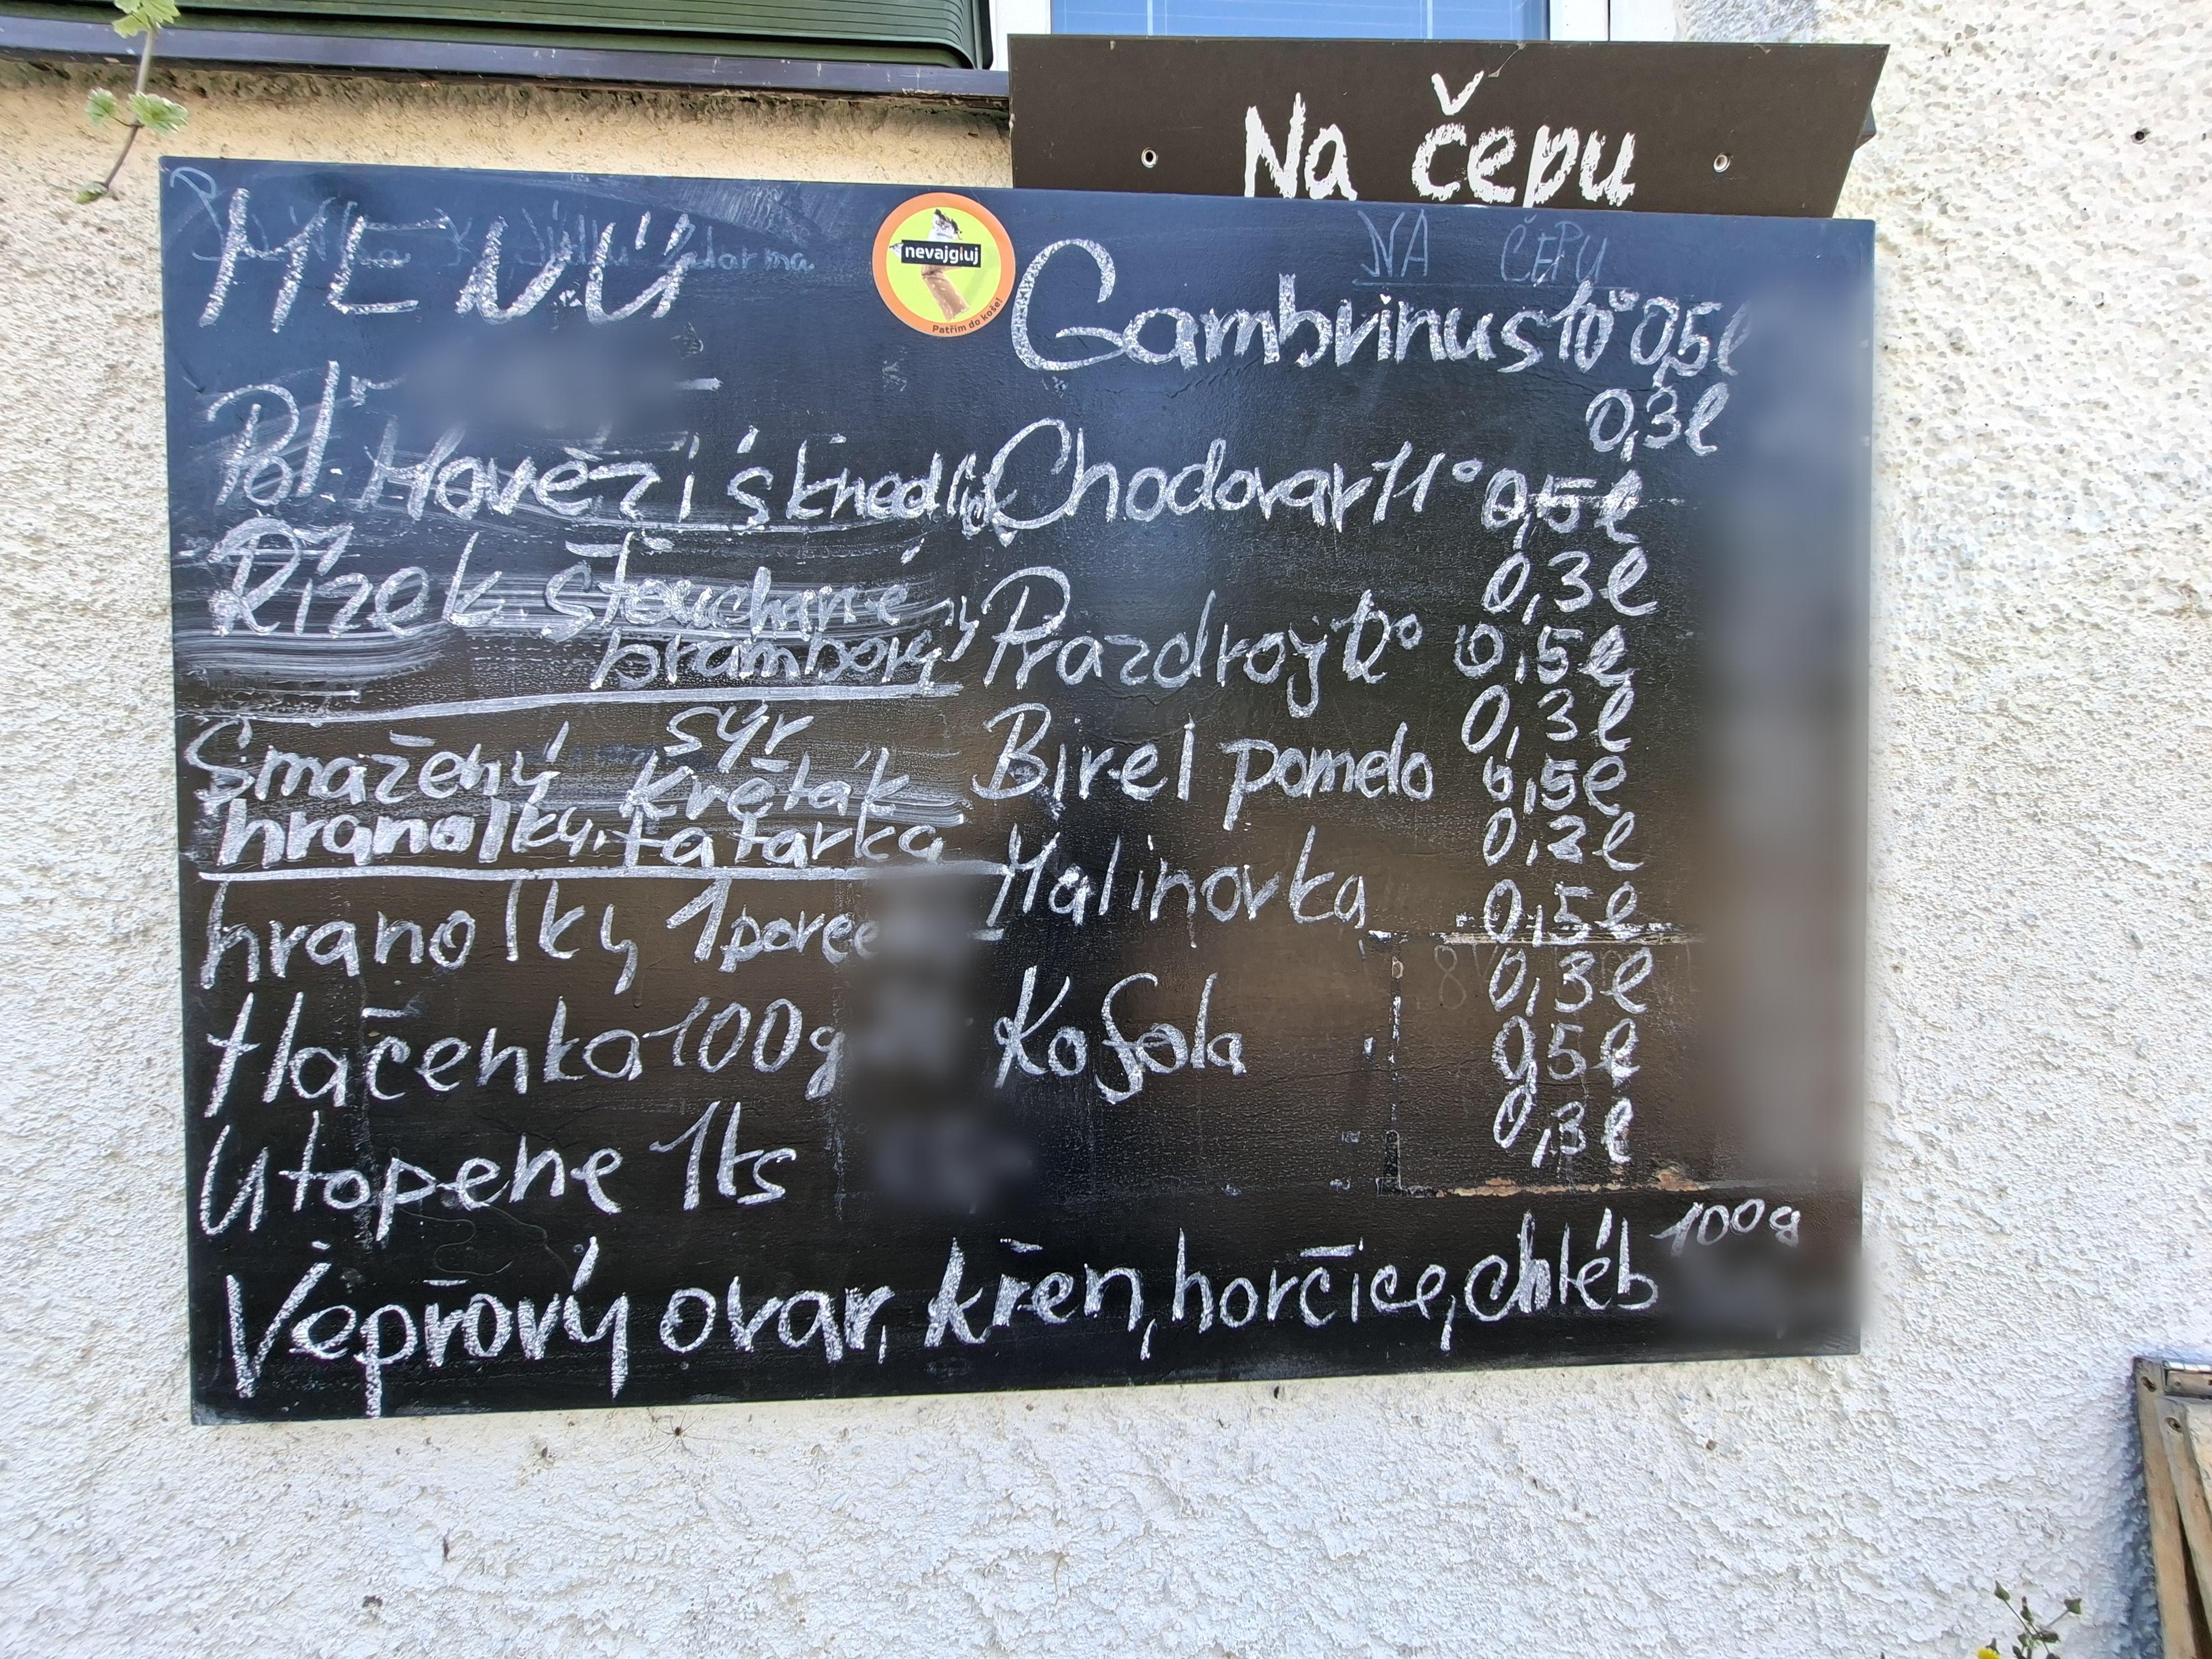 Na čepu
MENU
nevajgluj
Patřím do koše!
NA ČEPU
Pol.
Pol. Hovězí s knedlík
Řízek. šťouchané
brambory
Smažený syr
květák
hranolky, tatarka
hranolky 1porce
tlačenka 100g
Utopene 1ks
Gambrinus 10° 0,5l
0,3l
Chodovar 11° 0,5l
0,3l
Prazdroj 12° 0,5l
0,3l
Birel pomelo 0,5l
0,2l
Malinovka 0,5l
0,3l
Kofola 0,5l
0,3l
Vepřový ovar, křen, horčice, chléb 100g